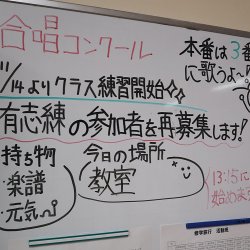 合唱コンクール
本番は3番
に歌うよ〜
/14よりクラス練習開始
有志練の参加者を再募集します!
持ち物
・楽譜
・元気
今日の場所
教室
13:15に
始めます
修学旅行 活動班